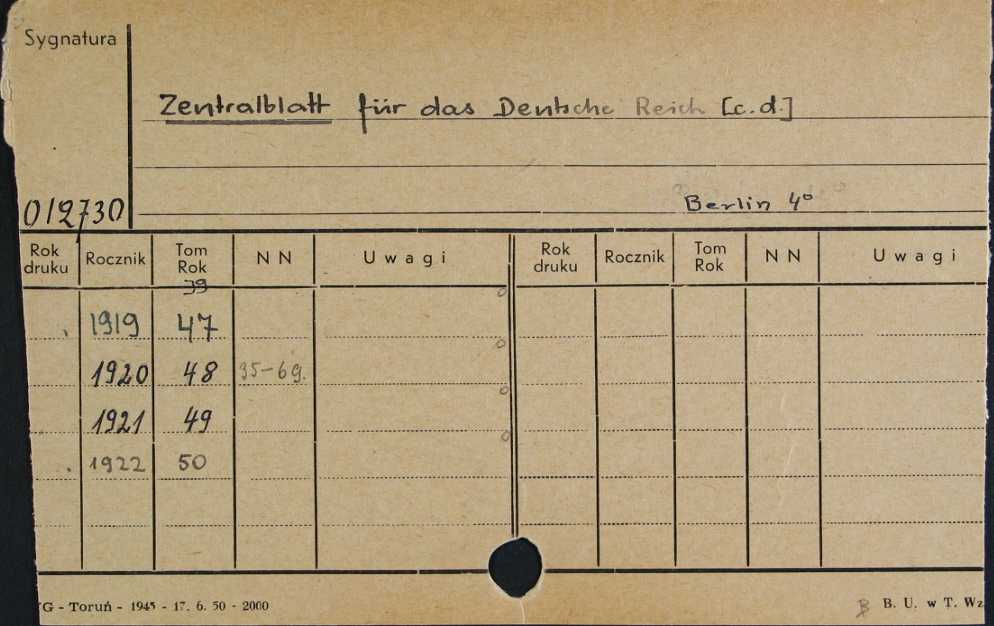 Sygnatura
Zentralblatt für das Deutsche Reich [c.d.]
Berlin 4°
012730
Rok druku Rocznik Tom Rok N N Uwagi Rok druku Rocznik Tom Rok N N Uwagi
39
1919 47
1920 48 35-69.
1921 49
1922 50
G - Toruń - 1945 - 17. 6. 50 - 2000
B. U. w T. Wz